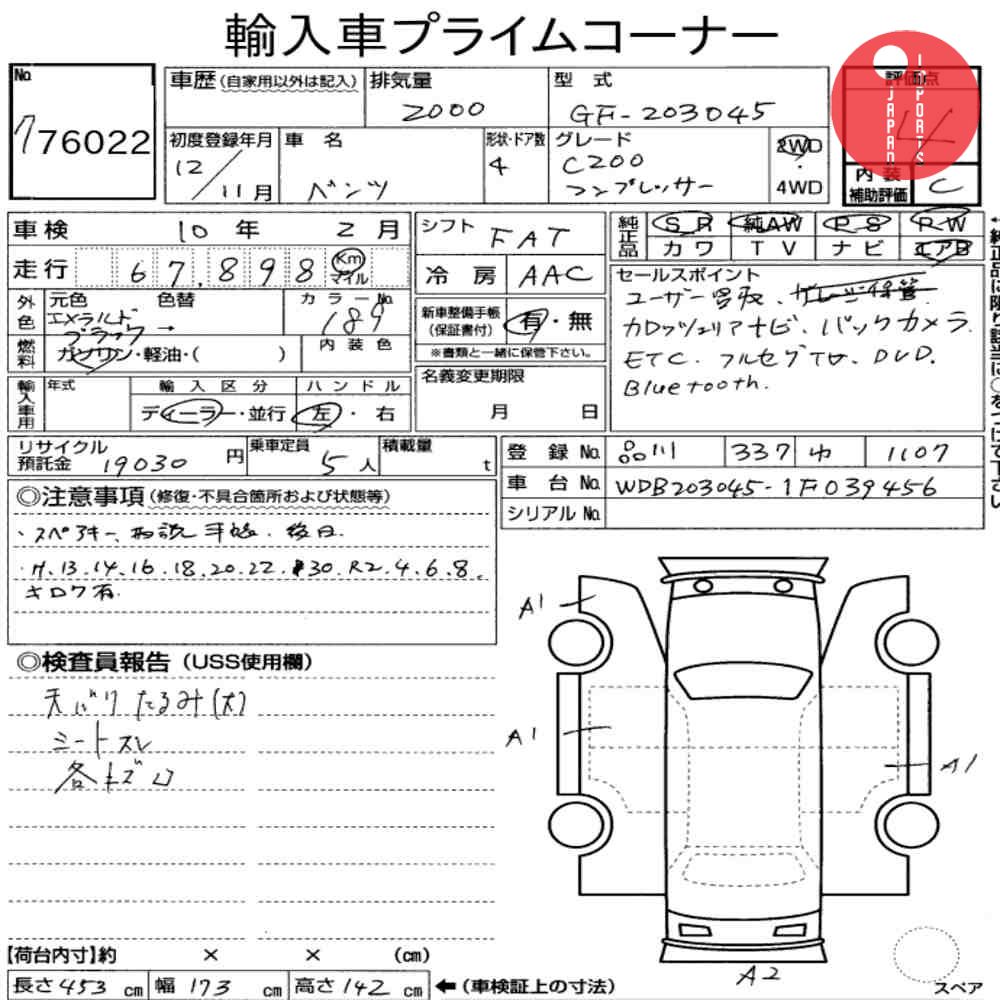 輸入車プライムコーナー
No.
776022
車歴 (自家用以外は記入)
排気量
2000
型式
GF-203045
評価点
4
JAPAN IMPORTS
初度登録年月
12/11月
車名
ベンツ
形状・ドア数
4
グレード
C200
コンプレッサー
2WD
・
4WD
内装
補助評価
C
車検 10年 2月
走行 67,898 Km マイル
シフト FAT
冷房 AAC
純正品
SR 純AW PS PW
カワ TV ナビ エアB
外色
元色 色替 カラーNo.
エメラルド
ブラック →
189
燃料
ガソリン・軽油・( )
内装色
新車整備手帳
(保証書付)
有・無
※書類と一緒に保管下さい。
セールスポイント
ユーザー買取、ガレージ保管
カロッツェリアナビ、バックカメラ
ETC. フルセグTV. DVD.
Bluetooth.
輸入車用
年式
輸入区分
ディーラー・並行
ハンドル
左・右
名義変更期限
月 日
リサイクル
預託金 19030円
乗車定員
5人
積載量
t
登録No. 品川 337 ゆ 1107
車台No. WDB203045-1F039456
シリアルNo.
◎注意事項 (修復・不具合箇所および状態等)
・スペアキー、取説、手帳、後日.
・H.13.14.16.18.20.22.30.R2.4.6.8.
キロク有.
◎検査員報告 (USS使用欄)
天ばりたるみ(大)
シートスレ
各キズ
A1
A1
A1
A2
スペア
【荷台内寸】約 × × (cm)
長さ453cm 幅173cm 高さ142cm ←(車検証上の寸法)